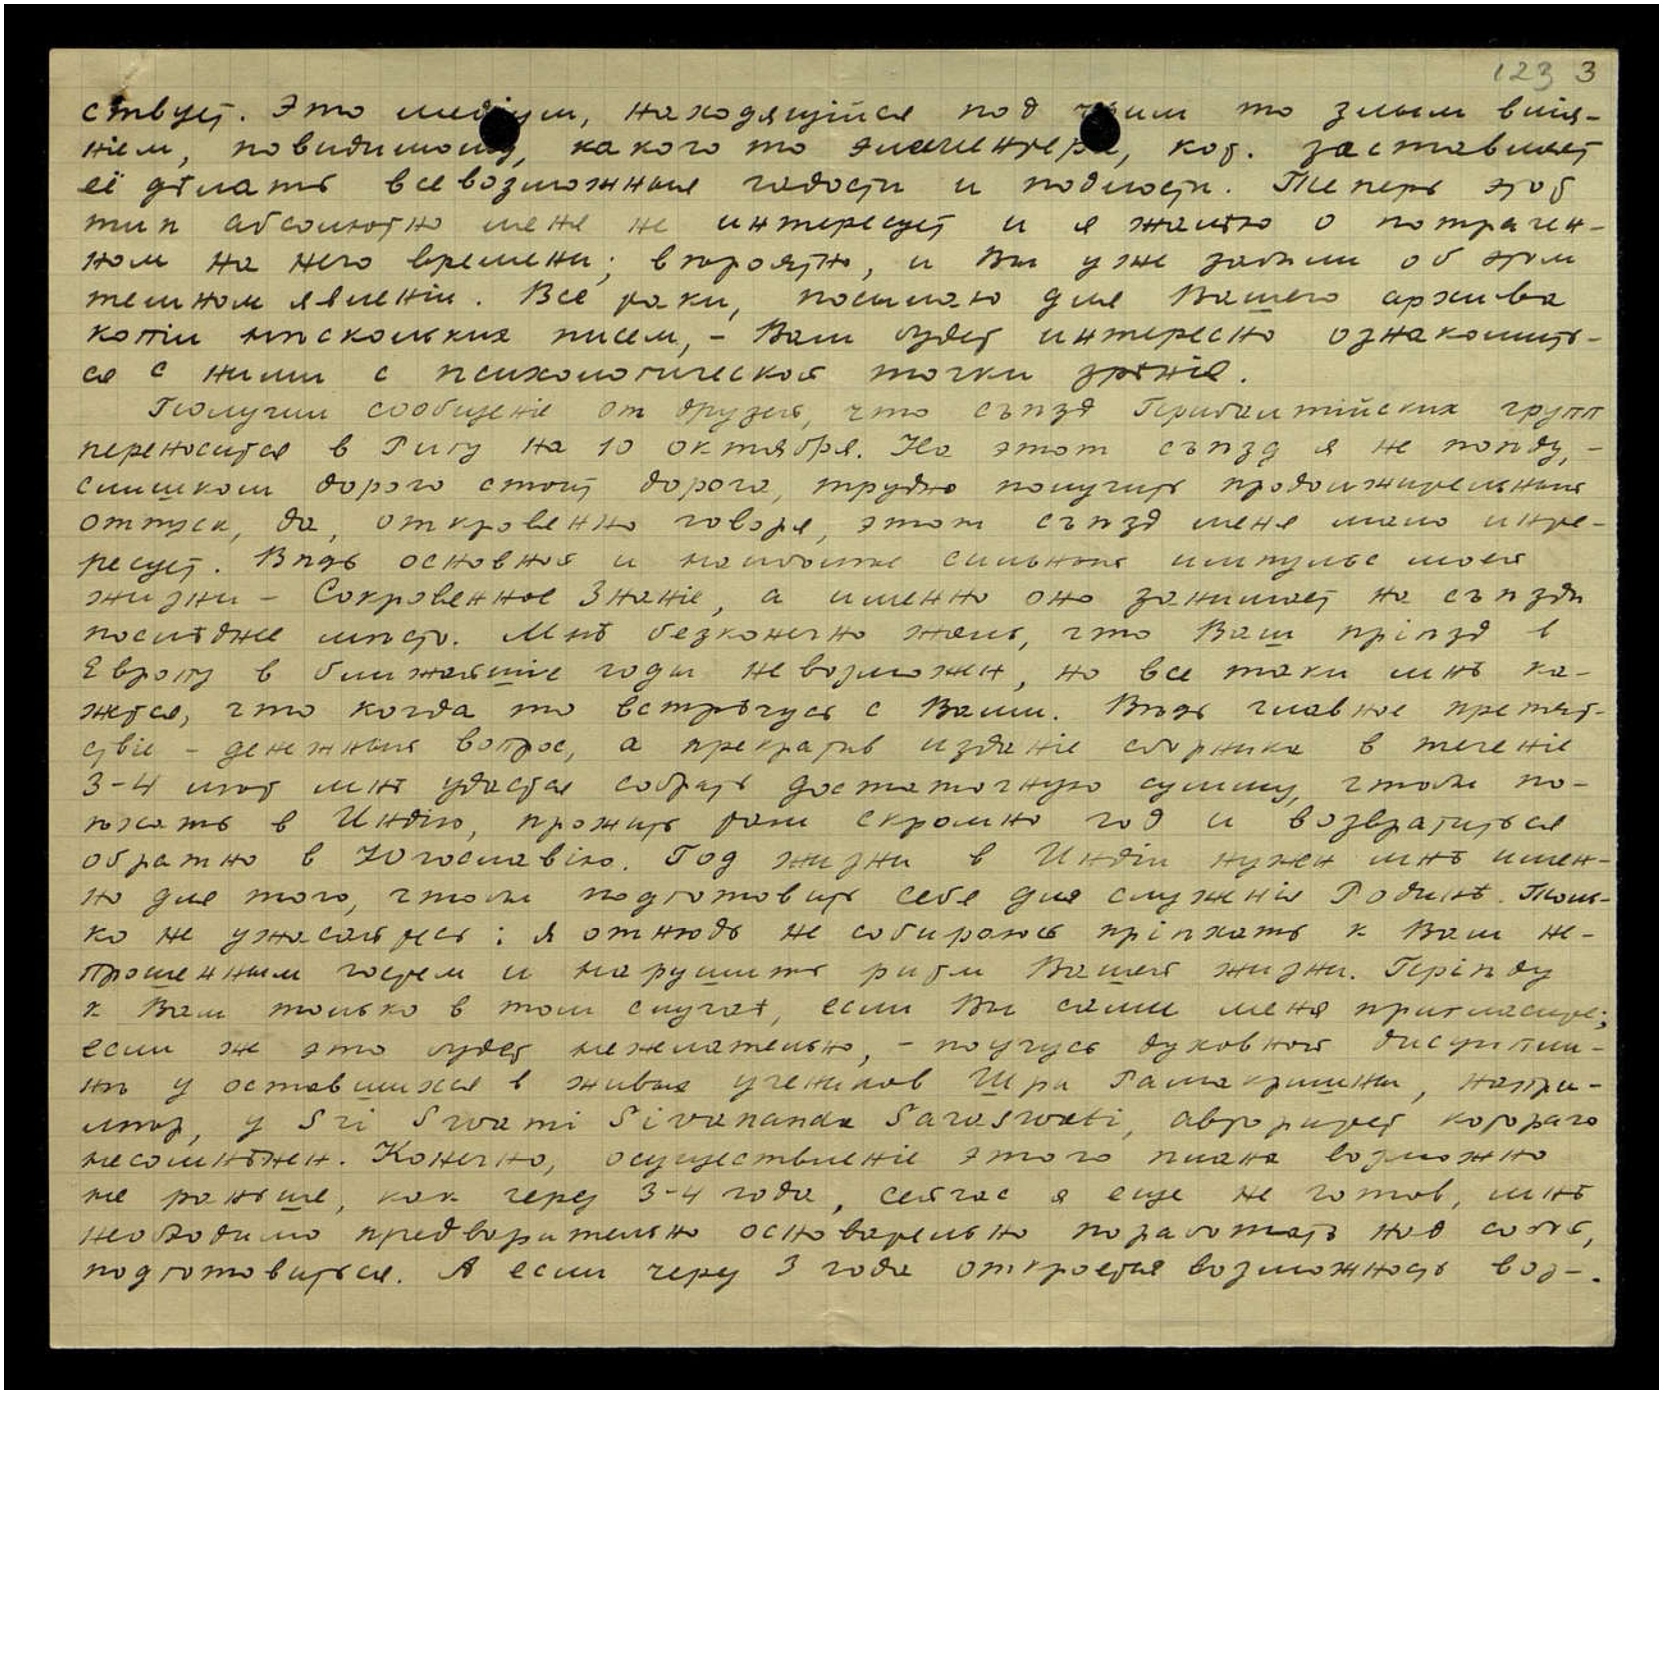 123 3
ствует. Это медіум, находящійся под чьим то злым влія-
ніем, повидимому, какого то элементера, кот. заставляет
её дѣлать всевозможныя гадости и подлости. Теперь этот
тип абсолютно меня не интересует и я жалѣю о потрачен-
ном на него времени; вѣроятно, и Вы уже забыли об этом
темном явленіи. Всё таки, посылаю для Вашего архива
копіи нѣскольких писем, – Вам будет интересно ознакомить-
ся с ними с психологической точки зрѣнія.
Получили сообщеніе от друзей, что съѣзд Прибалтійских групп
переносится в Ригу на 10 октября. На этот съѣзд я не поѣду, –
слишком дорого стоит дорога, трудно получить продолжительный
отпуск, да, откровенно говоря, этот съѣзд меня мало инте-
ресует. Вѣдь основной и наиболѣе сильный импульс моей
жизни – Сокровенное Знаніе, а именно оно занимает на съѣздѣ
послѣднее мѣсто. Мнѣ безконечно жаль, что Ваш пріѣзд в
Европу в ближайшіе годы невозможен, но все таки мнѣ ка-
жется, что когда то встрѣчусь с Вами. Вѣдь главное препят-
ствіе – денежный вопрос, а прекратив изданіе сборника в теченіе
3-4 лѣт мнѣ удастся собрать достаточную сумму, чтобы по-
ѣхать в Индію, прожить там скромно год и возвратиться
обратно в Югославію. Год жизни в Индіи нужен мнѣ имен-
но для того, чтобы подготовить себя для служенія Родинѣ. Толь-
ко не ужасайтесь: я отнюдь не собираюсь пріѣхать к Вам не-
прошенным гостем и нарушить ритм Вашей жизни. Пріѣду
к Вам только в том случаѣ, если Вы сами меня пригласите;
если же это будет нежелательно, – поучусь духовной дисципли-
нѣ у оставшихся в живых учеников Шри Рамакришны, напри-
мѣр, у Sri Swami Sivananda Saraswati, авторитет котораго
несомнѣнен. Конечно, осуществленіе этого плана возможно
не раньше, как через 3-4 года, сейчас я еще не готов, мнѣ
необходимо предварительно основательно поработать над собой,
подготовиться. А если через 3 года откроется возможность воз-